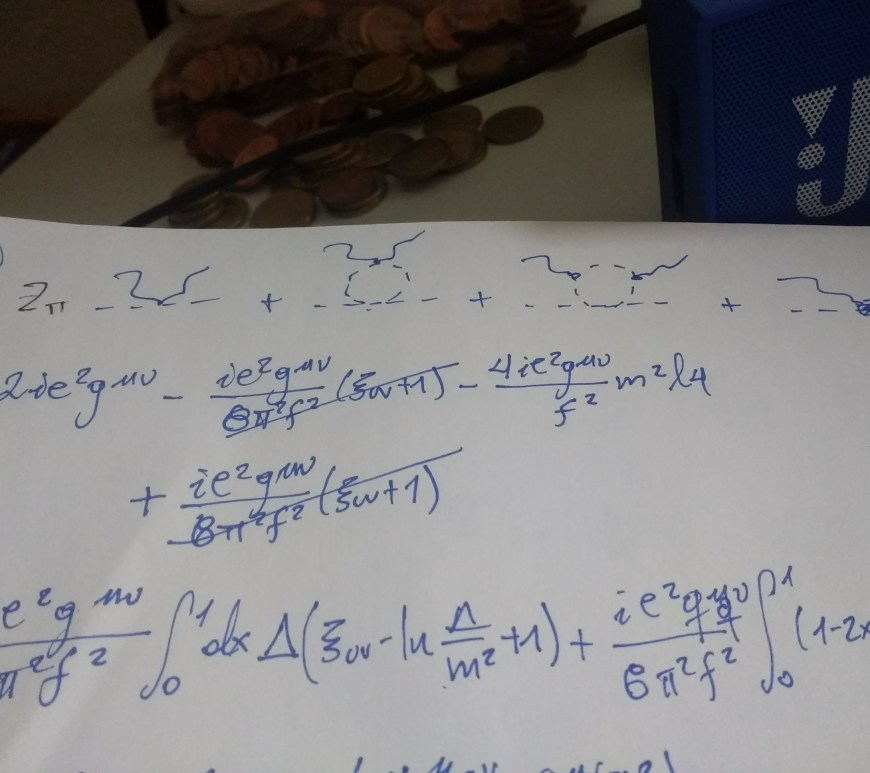 J
Zπ - - - + - - - + - - - + - -
2ie²g^μν - ie²g^μν/8π²f² (ξuv+1) - 4ie²g^μν/f² m²l4
+ ie²g^μν/8π²f² (ξuv+1)
e²g^μν/π²f² ∫₀¹ dx Δ(ξuv - ln Δ/m² +1) + ie²q^μq^ν/6π²f² ∫₀¹ (1-2x